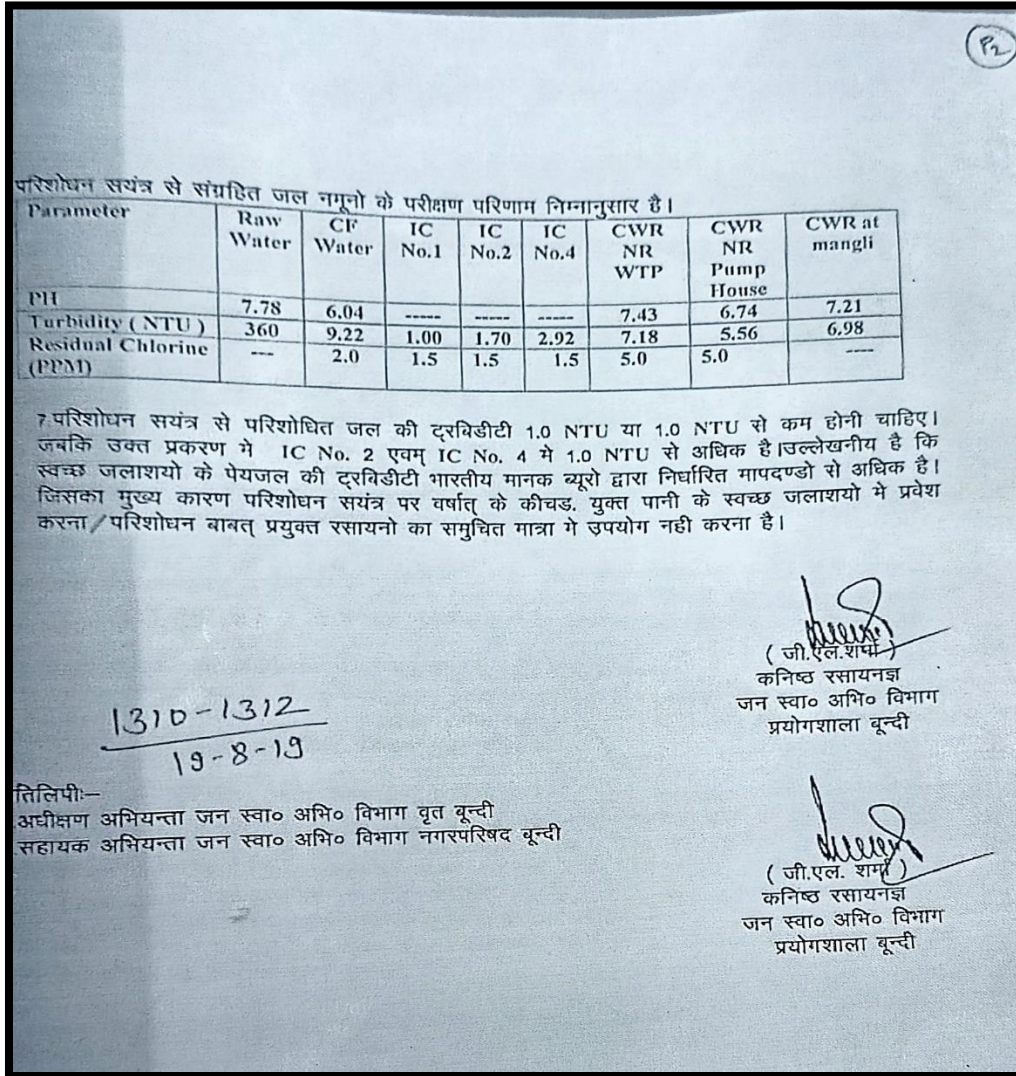 P2
परिशोधन सयंत्र से संग्रहित जल नमूनो के परीक्षण परिणाम निम्नानुसार है।
Parameter Raw Water CF Water IC No.1 IC No.2 IC No.4 CWR NR WTP CWR NR Pump House CWR at mangli
PH 7.78 6.04 ----- ----- ----- 7.43 6.74 7.21
Turbidity ( NTU ) 360 9.22 1.00 1.70 2.92 7.18 5.56 6.98
Residual Chlorine (PPM) --- 2.0 1.5 1.5 1.5 5.0 5.0 ----
7.परिशोधन सयंत्र से परिशोधित जल की ट्रबिडीटी 1.0 NTU या 1.0 NTU से कम होनी चाहिए।
जबकि उक्त प्रकरण मे IC No. 2 एवम् IC No. 4 मे 1.0 NTU से अधिक है।उल्लेखनीय है कि
स्वच्छ जलाशयो के पेयजल की ट्रबिडीटी भारतीय मानक ब्यूरो द्वारा निर्धारित मापदण्डो से अधिक है।
जिसका मुख्य कारण परिशोधन सयंत्र पर वर्षात् के कीचड. युक्त पानी के स्वच्छ जलाशयो मे प्रवेश
करना/परिशोधन बाबत् प्रयुक्त रसायनो का समुचित मात्रा मे उपयोग नही करना है।
( जी.एल.शर्मा )
कनिष्ठ रसायनज्ञ
जन स्वा० अभि० विभाग
प्रयोगशाला बून्दी
1310-1312
19-8-19
तिलिपीः-
अधीक्षण अभियन्ता जन स्वा० अभि० विभाग वृत बून्दी
सहायक अभियन्ता जन स्वा० अभि० विभाग नगरपरिषद बून्दी
( जी.एल. शर्मा )
कनिष्ठ रसायनज्ञ
जन स्वा० अभि० विभाग
प्रयोगशाला बून्दी